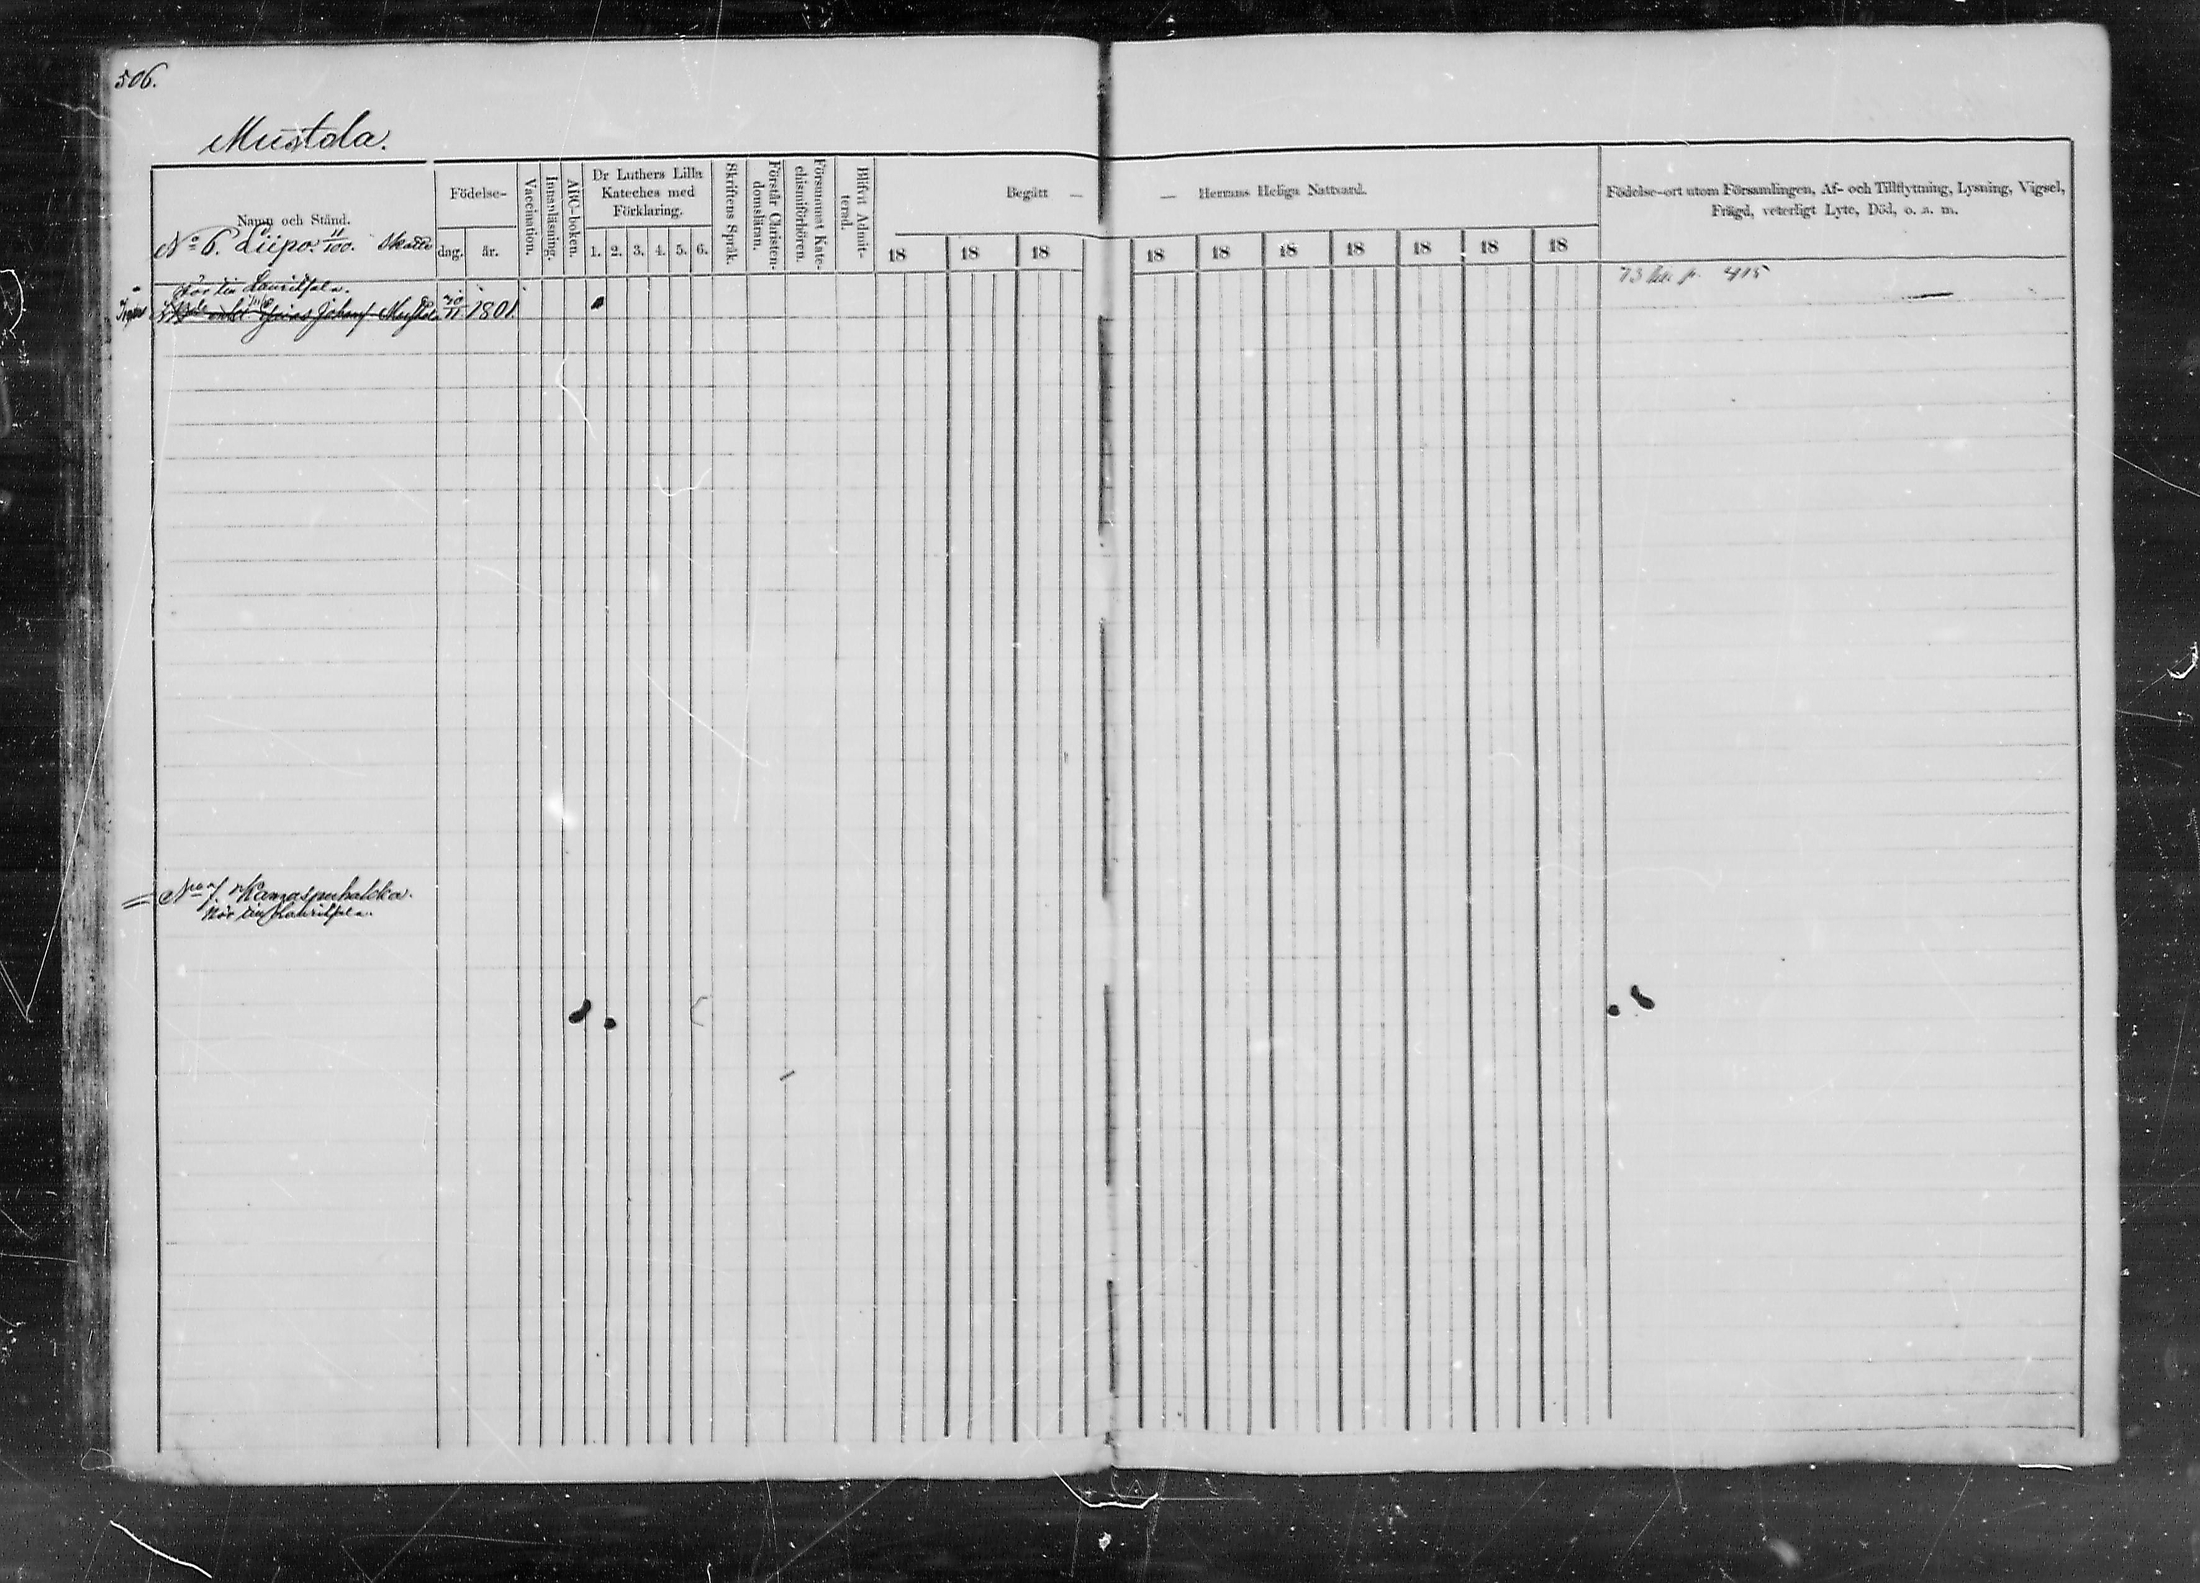 506.
Mustola.
Namn och Stånd.
No 6. Liipo. 11/100. Skatte
Födelse-
dag. år.
Vaccination.
Innanläsning.
ABC-boken.
Dr Luthers Lilla
Kateches med
Förklaring.
1. 2. 3. 4. 5. 6.
Skriftens Språk.
Förstår Christen-
domsläran.
Försummat Kate-
chismiförhören.
Blifvit Admit-
terad.
Begått — — Herrans Heliga Nattvard.
18 18 18 18 18 18 18 18 18 18
Födelse-ort utom Församlingen, Af- och Tillflyttning, Lysning, Vigsel,
Frägd, veterligt Lyte, Död, o. s. m.
Lauritsala.
73 p. 415
Johans Mustola 30/11 1801.
No 7. Kanaspuhakka.
Lauritsala.